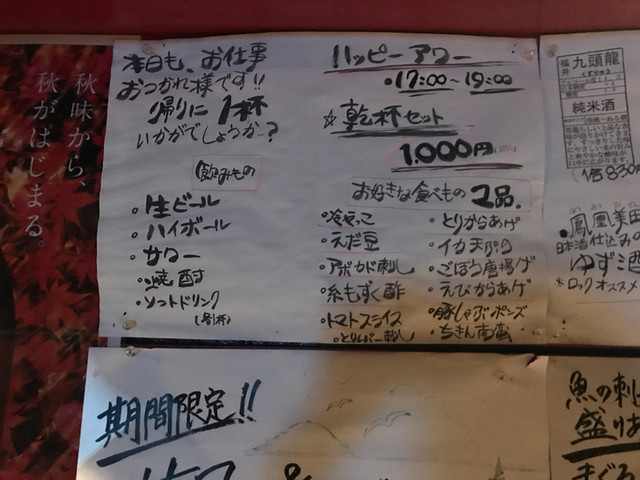 秋味から、
秋がはじまる。
本日も、お仕事
おつかれ様です!!
帰りに 1杯
いかがでしょうか?
飲みもの
・生ビール
・ハイボール
・サワー
・焼酎
・ソフトドリンク
ハッピーアワー
・17:00~19:00
☆乾杯セット
1,000円
お好きな食べもの 2品
・冷やっこ
・えだ豆
・アボカド刺し
・糸もずく酢
・トマトスライス
・とりレバー刺し
・とりからあげ
・イカ天ぷら
・ごぼう唐揚げ
・えびからあげ
・豚しゃぶポンズ
・ちきん南蛮
福井
九頭龍
純米酒
1合 830円
鳳凰美田
日本酒仕込みの
ゆず酒
*ロックオススメ
期間限定!!
魚の刺
盛りあ
まぐろ